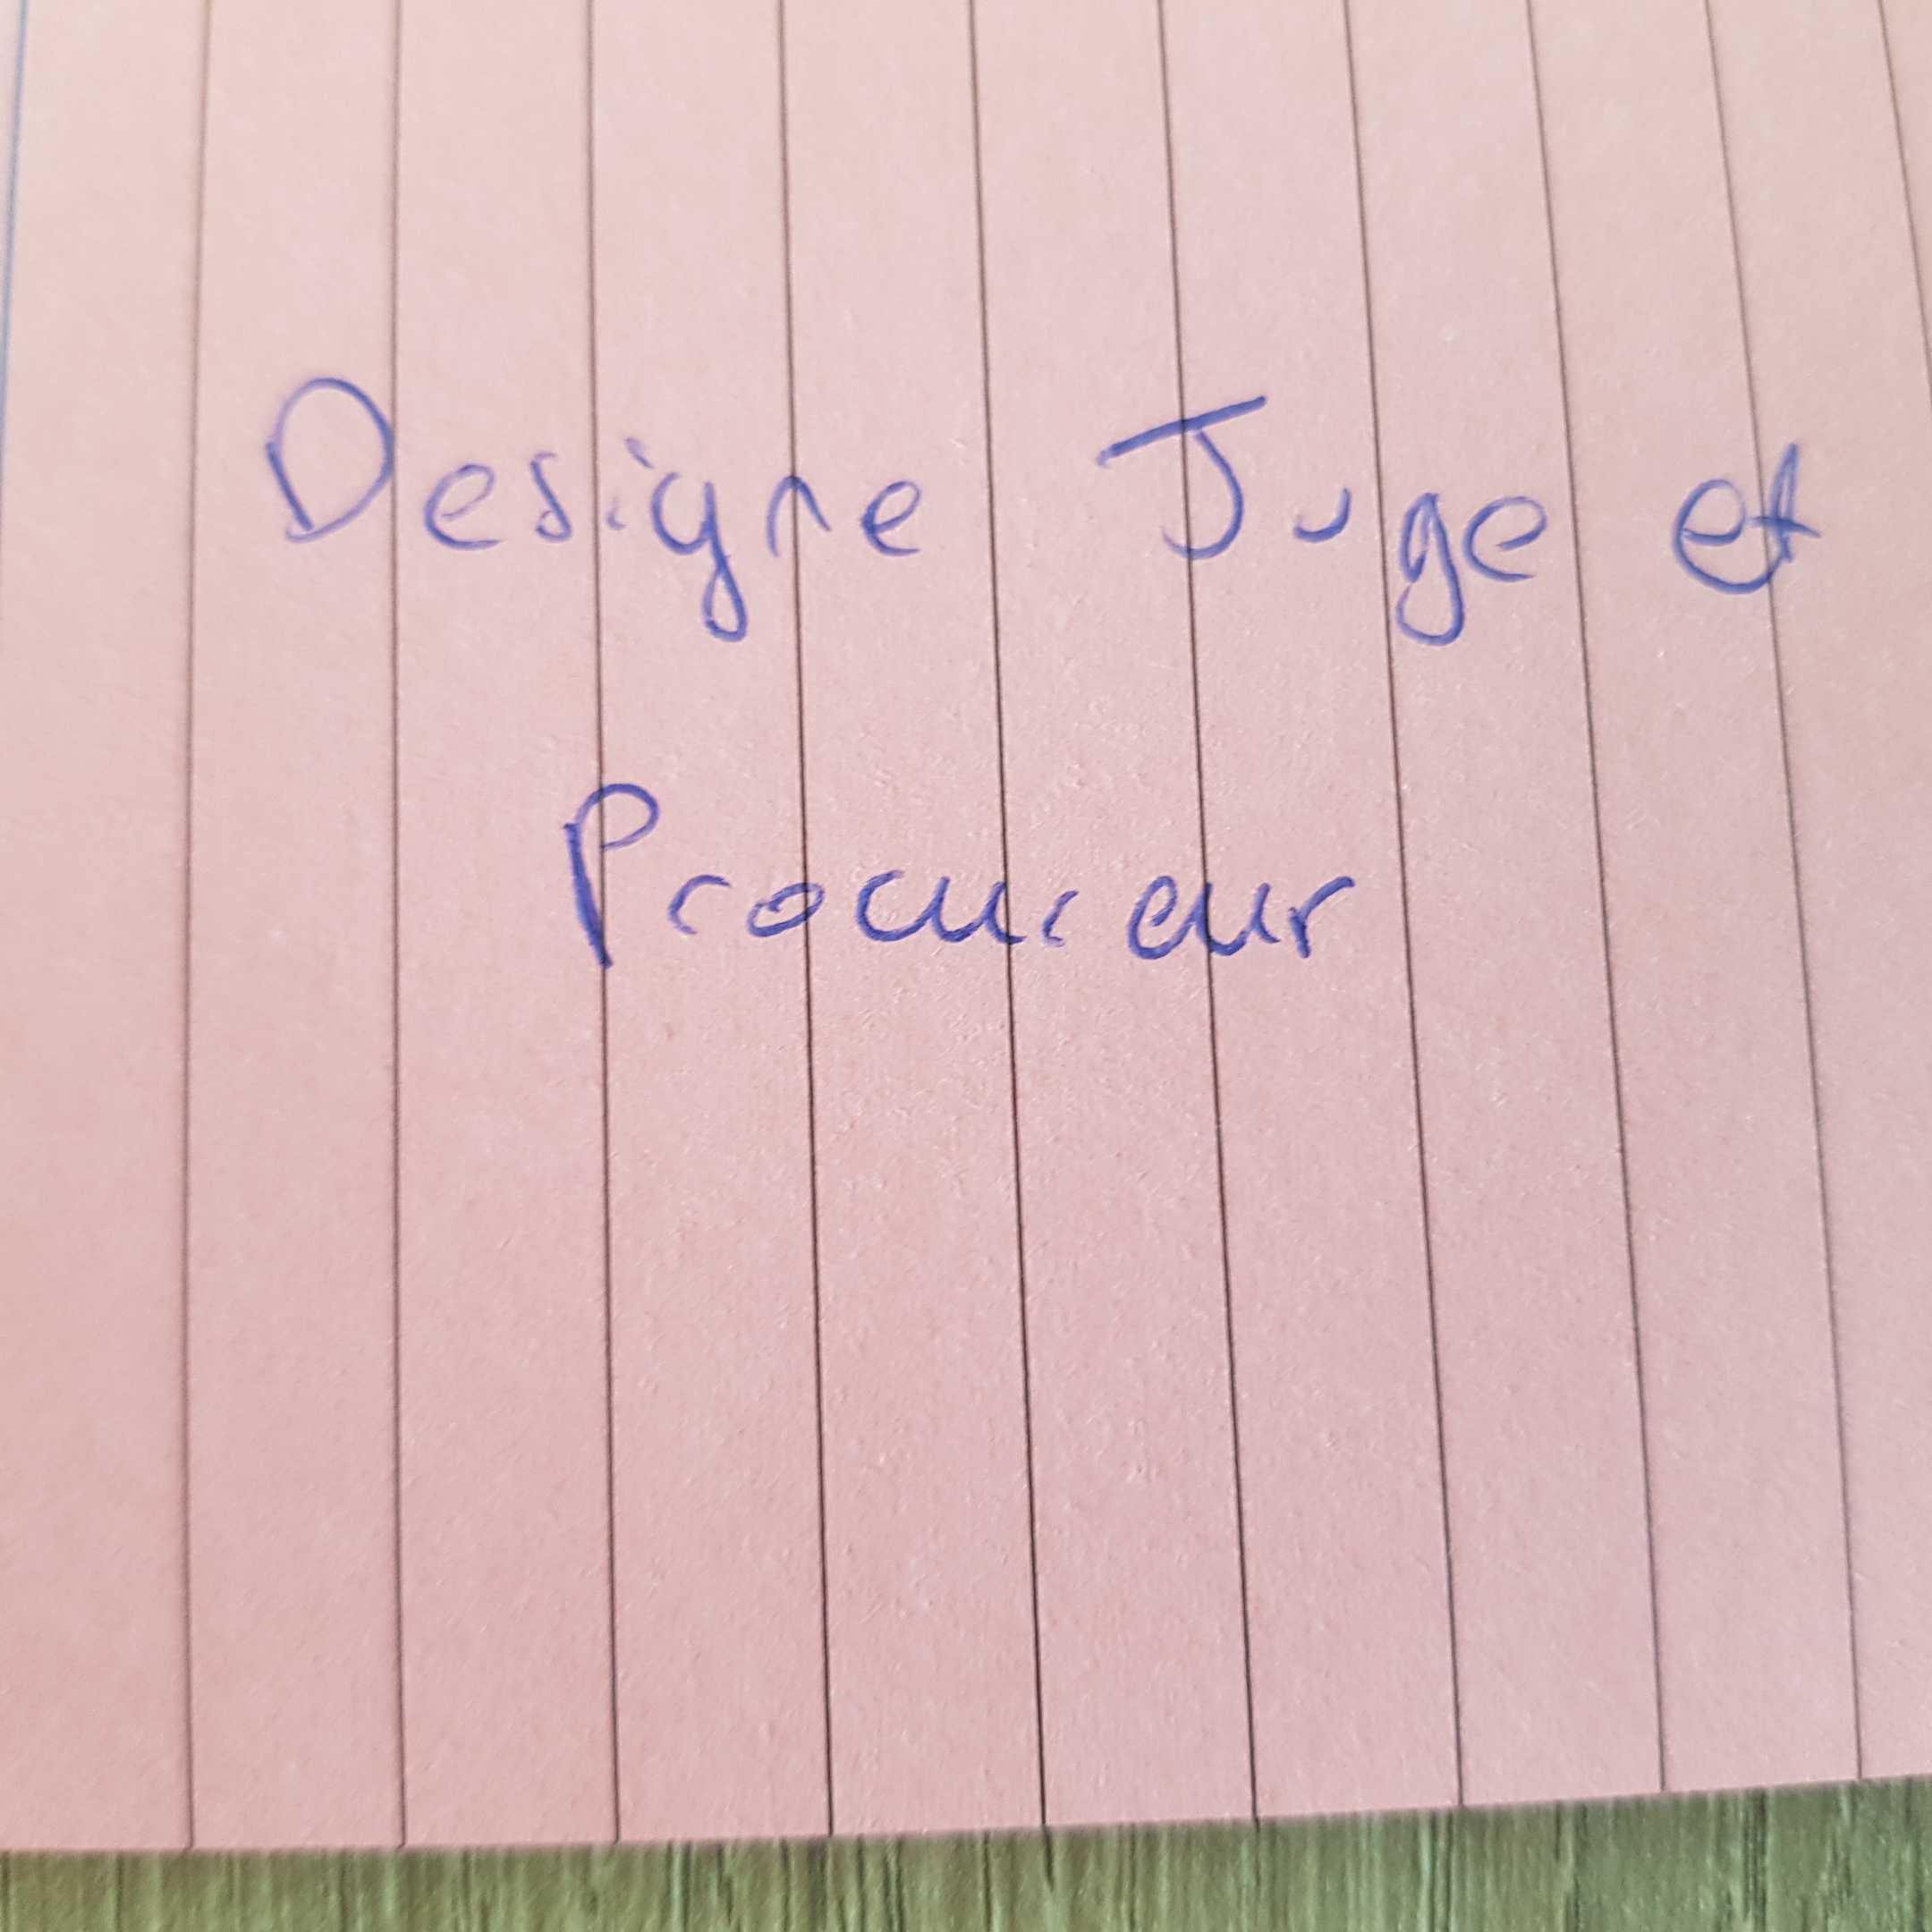 Designe Juge et
Procureur